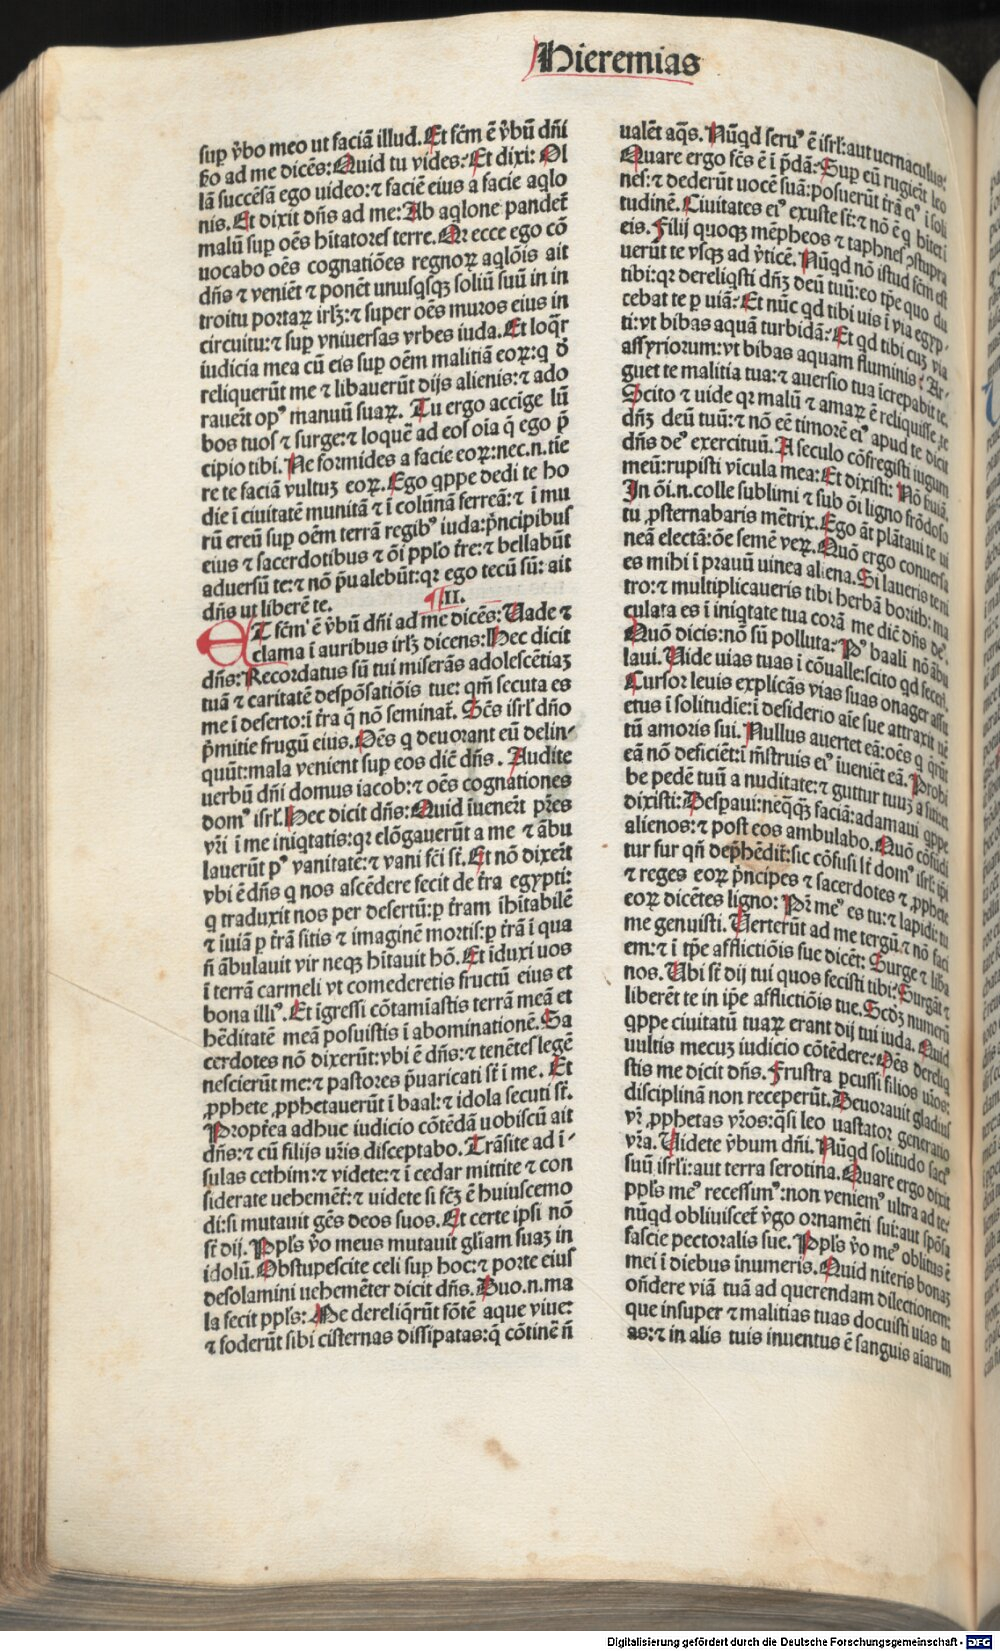 Hieremias
sup v̉bo meo ut faciā illud. Et fc̄m ē v̉bū dn̄i
scḋo ad me dicēs: Quid tu vides: Et dixi: Ol
lā succēsā ego video: ⁊ faciē eius a facie aq̇lo
nis. Et dixit dn̄s ad me: Ab aq̇lone pandet̄
malū sup oēs hītatores terre. Qꝛ ecce ego cō
uocabo oēs cognatiōes regnoꝝ aq̇lōis ait
dn̄s ⁊ veniēt ⁊ ponēt unusq̇sqꝫ soliū suū in in
troitu portaꝝ irlꝫ: ⁊ super oēs muros eius in
circuitu: ⁊ sup vniuersas vrbes iuda. Et loq̄r
iudicia mea cū eis sup oēm malitiā eoꝝ: q̇ d̄
reliquerūt me ⁊ libauerūt dijs alienis: ⁊ ado
rauer̄t opꝰ manuū suaꝝ. Tu ergo accīge lū
bos tuos ⁊ surge: ⁊ loquē ad eos oīa q̄ ego p̄
cipio tibi. Ne formides a facie eoꝝ: nec .n. tīe
re te faciā vultuꝫ eoꝝ. Ego q̇ppe dedi te ho
die ī ciuitatē munitā ⁊ ī colūnā ferreā: ⁊ ī mu
rū ereū sup oēm terrā regibꝰ iuda: p̄ncipibus
eius ⁊ sacerdotibus ⁊ ōi pplo t̄re: ⁊ bellabūt
aduersū te: ⁊ nō p̄ualebūt: qꝛ ego tecū sū: ait
dn̄s ut liberē te. II.
ET fc̄m ē v̉bū dn̄i ad me dicēs: Uade ⁊
clama ī auribus irlꝫ dicens: Hec dicit
dn̄s: Recordatus sū tui miserās adolescētiaꝫ
tuā ⁊ caritatē despōsatiōis tue: qm̄ secuta es
me ī deserto: ī t̄ra q̄ nō seminat̄. Sc̄s isrl̄ dn̄o
p̄mitie frugū eius. Oēs q̇ deuorant eū delin-
quūt: mala venient sup eos dic̄ dn̄s. Audite
uerbū dn̄i domus iacob: ⁊ oēs cognationes
domꝰ isrl̄. Hec dicit dn̄s: Quid īuener̄t pr̄es
vr̄i ī me iniq̇tatis: qꝛ elōgauerūt a me ⁊ ābu
lauerūt pꝰ vanitatē: ⁊ vani fc̄i st̄. Et nō dixer̄t
vbi ē dn̄s q̇ nos ascēdere fecit de t̄ra egypti:
q̇ traduxit nos per desertū: p t̄ram īhītabilē
⁊ īuiā p t̄rā sitis ⁊ imaginē mortis: p t̄rā ī qua
n̄ ābulauit vir neqꝫ hītauit hō. Et īduxi uos
ī terrā carmeli vt comederetis fructū eius et
bona illiꝰ. Et īgressi cōtamīastis terrā meā et
hēditatē meā posuistis ī abominationē. Sa
cerdotes nō dixerūt: vbi ē dn̄s: ⁊ tenētes legē
nescierūt me: ⁊ pastores p̄uaricati st̄ ī me. Et
ꝓphete ꝓphetauerūt ī baal: ⁊ idola secuti st̄.
Propt̄ea adhuc iudicio cōtēdā uobiscū ait
dn̄s: ⁊ cū filijs vr̄is disceptabo. Trāsite ad ī-
sulas cethim: ⁊ videte: ⁊ ī cedar mittite ⁊ con
siderate uehemēt̄: ⁊ uidete si fc̄ꝫ ē huiuscemo
di: si mutauit gēs deos suos. Et certe ipsi nō
st̄ dij. Ppls̄ v̉o meus mutauit gl̄iam suaꝫ in
idolū. Obstupescite celi sup hoc: ⁊ porte eius
desolamini uehemēter dicit dn̄s. Duo .n. ma
la fecit ppls̄: Me dereliq̇rūt fōtē aque viue:
⁊ foderūt sibi cisternas dissipatas: q̄ cōtinē n̄
ualēt aq̄s. Nūq̇d seruꝰ ē isrl̄: aut uernaculus:
Quare ergo fc̄s ē ī p̄dā: Sup eū rugier̄t leo
nes: ⁊ dederūt uocē suā: posuerūt t̄rā eiꝰ ī soli
tudinē. Ciuitates eiꝰ exuste st̄: ⁊ nō ē q̇ hītet ī
eis. Filij quoqꝫ mēpheos ⁊ taphnes ꝯstupra
uerūt te vsqꝫ ad v̉ticē. Nūq̇d nō istud fc̄m est
tibi: qꝛ dereliq̇sti dn̄ꝫ deū tuū: eo tp̄e quo du
cebat te p uiā: Et nūc q̇d tibi uis ī via egyp-
ti: vt bibas aquā turbidā: Et q̇d tibi cuꝫ via
assyriorum: vt bibas aquam fluminis: Ar-
guet te malitia tua: ⁊ auersio tua īcrepabit te.
Scito ⁊ uide qꝛ malū ⁊ amaꝝ ē reliquisse te
dn̄ꝫ deū tuū: ⁊ nō eē timorē eiꝰ apud te dicit
dn̄s deꝰ exercituū. A seculo cōfregisti iugum
meū: rupisti vīcula mea: Et dixisti: Nō ẜuiā.
In ōi .n. colle sublimi ⁊ sub ōi ligno frōdoso
tu ꝓsternabaris mētrix. Ego āt plātaui te ui
neā electā: ōe semē veꝝ. Quō ergo conuersa
es mihi ī prauū uinea aliena. Si laueris te ni
tro: ⁊ multiplicaueris tibi herbā borith: ma
culata es ī iniq̇tate tua corā me dic̄ dn̄s deꝰ.
Quō dicis: nō sū polluta: Pꝰ baali nō ābu
laui. Uide uias tuas ī cōualle: scito q̇d feceri.
Cursor leuis explicās vias suas onager assu
etus ī solitudīe: ī desiderio aīe sue attraxit uē
tū amoris sui. Nullus auertet eā: oēs q̇ q̄rūt
eā nō deficiēt: ī mn̄struis eiꝰ īueniēt eā. Prohi
be pedē tuū a nuditate: ⁊ guttur tuuꝫ a siti: et
dixisti: Despaui: neq̄q̄ꝫ faciā: adamaui q̇ppe
alienos: ⁊ post eos ambulabo. Quō cōfūdi
tur fur qn̄ dep̄hēdit̄: sic cōfusi st̄ domꝰ isrl̄: ipi
⁊ reges eoꝝ p̄ncipes ⁊ sacerdotes ⁊ ꝓphete
eoꝝ dicētes ligno: Pr̄ meꝰ es tu: ⁊ lapidi: tu
me genuisti. Uerterūt ad me tergū ⁊ nō faci
em: ⁊ ī tp̄e afflictiōis sue dicēt: Surge ⁊ liba
nos. Ubi st̄ dij tui quos fecisti tibi: Surgāt ⁊
liberēt te in tp̄e afflictiōis tue. Scḋꝫ numerū
q̇ppe ciuitatū tuaꝝ erant dij tui iuda. Quid
uultis mecuꝫ iudicio cōtēdere: Oēs dereliq̇
stis me dicit dn̄s. Frustra pcussi filios vr̄os:
disciplinā non receperūt. Deuorauit gladius
vr̄ ꝓphetas vr̄os: q̄si leo uastator generatio
vr̄a. Uidete v̉bum dn̄i. Nūq̇d solitudo facꝰ
suū isrl̄i: aut terra serotina. Quare ergo dixit
ppls̄ meꝰ recessimꝰ: non veniemꝰ ultra ad te:
nūq̇d obliuiscet̄ v̉go ornamēti sui: aut spōsa
fascie pectoralis sue. Ppls̄ v̉o meꝰ oblitus ē
mei ī diebus īnumeris. Quid niteris bonaꝫ
oñdere viā tuā ad querendam dilectionem:
que insuper ⁊ malitias tuas docuisti uias tu
as: ⁊ in alis tuis inuentus ē sanguis aīarum
Digitalisierung gefördert durch die Deutsche Forschungsgemeinschaft - DFG